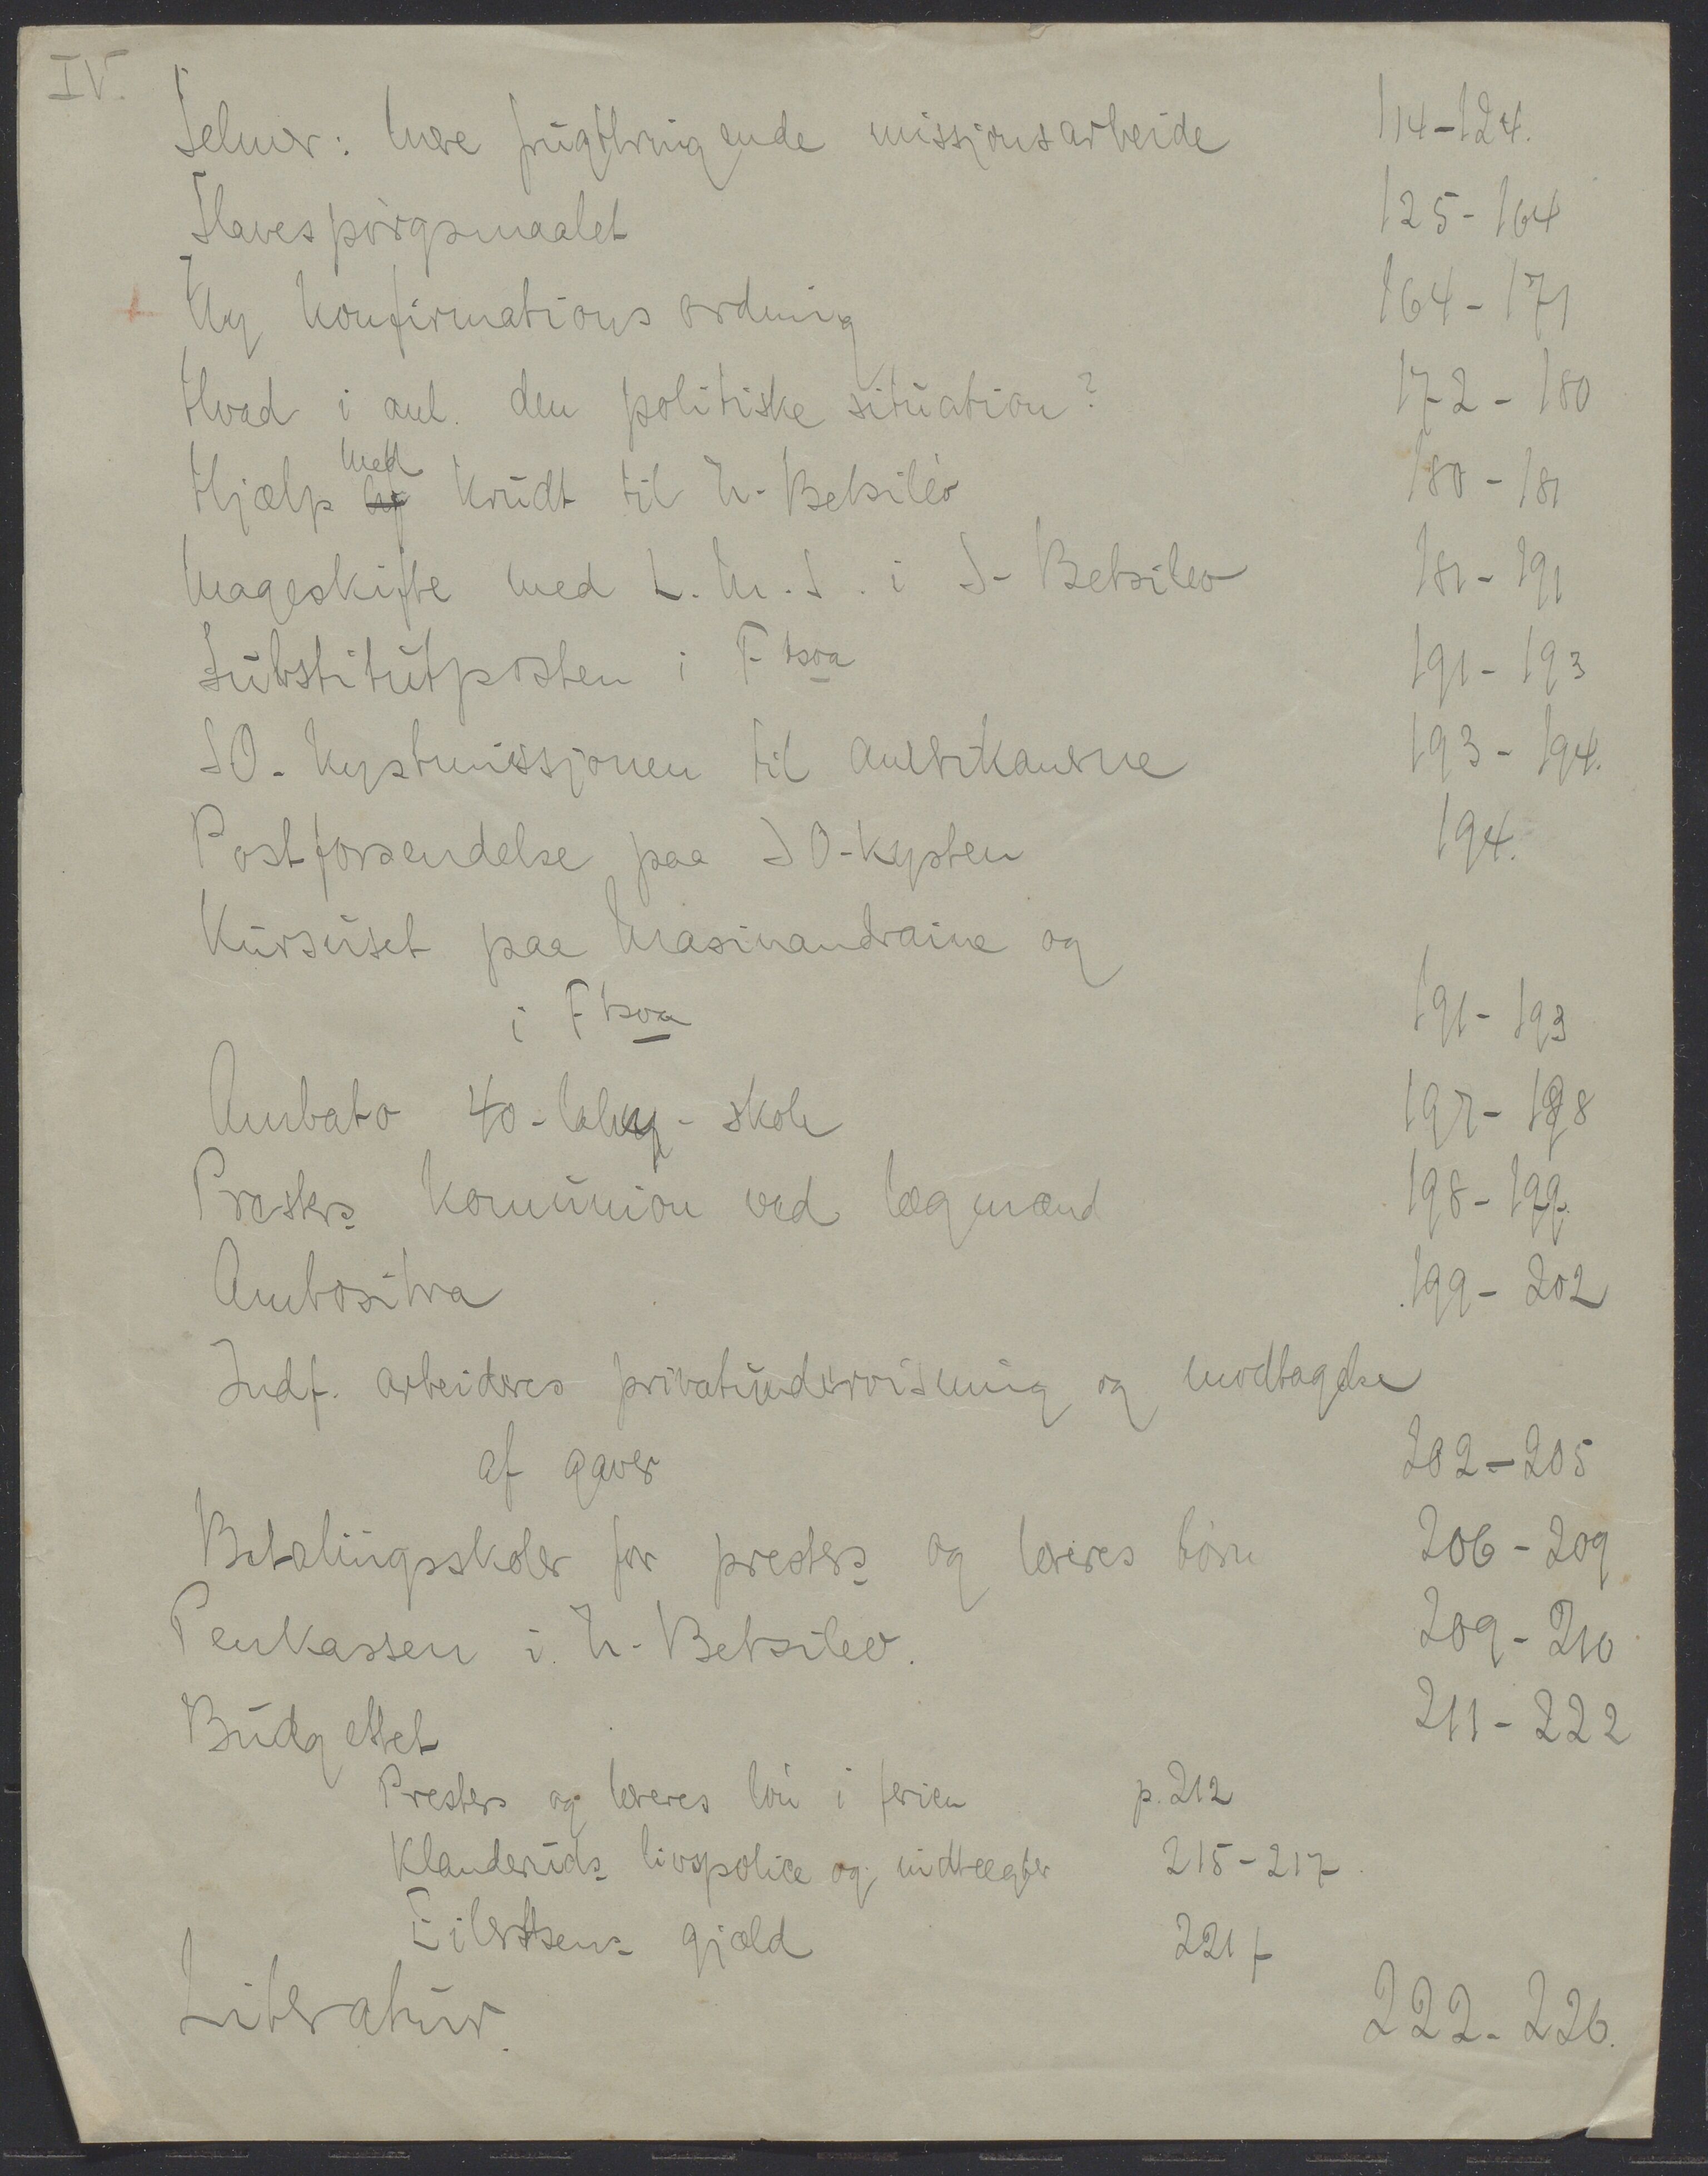 IV.
Selmer: Mere frugtbringende missjonsarbeide 114-124.
Slavespørgsmaalet 125-164
Ny Konfirmationsordning 164-171
Hvad i anl. den politiske situation? 172-180
med
Hjælp af Krudt til N-Betsileo 180-181
Mageskifte med L.M.S. i S-Betsileo 181-191
Substitutposten i Ftsoa 191-193
SO-Kystmissjonen til amerikanerne 193-194.
Postforsendelse paa SO-Kysten 194.
Kursuset paa Masinandraina og
i Ftsoa 191-193
Ambato 40-lahy-skole 197-198
Presters Kommunion ved lægmænd 198-199.
Ambositra 199-202
Indf. arbeideres privatundervisning og modtagelse
af gaver 202-205
Betalingsskoler for presters og læreres børn 206-209
Penkassen i N-Betsileo. 209-210
Budgettet 211-222
Presters og læreres løn i ferien p. 212
Klanderuds livspolice og indtægter 215-217
Eilertsens gjæld 221f
Literatur. 222-226.